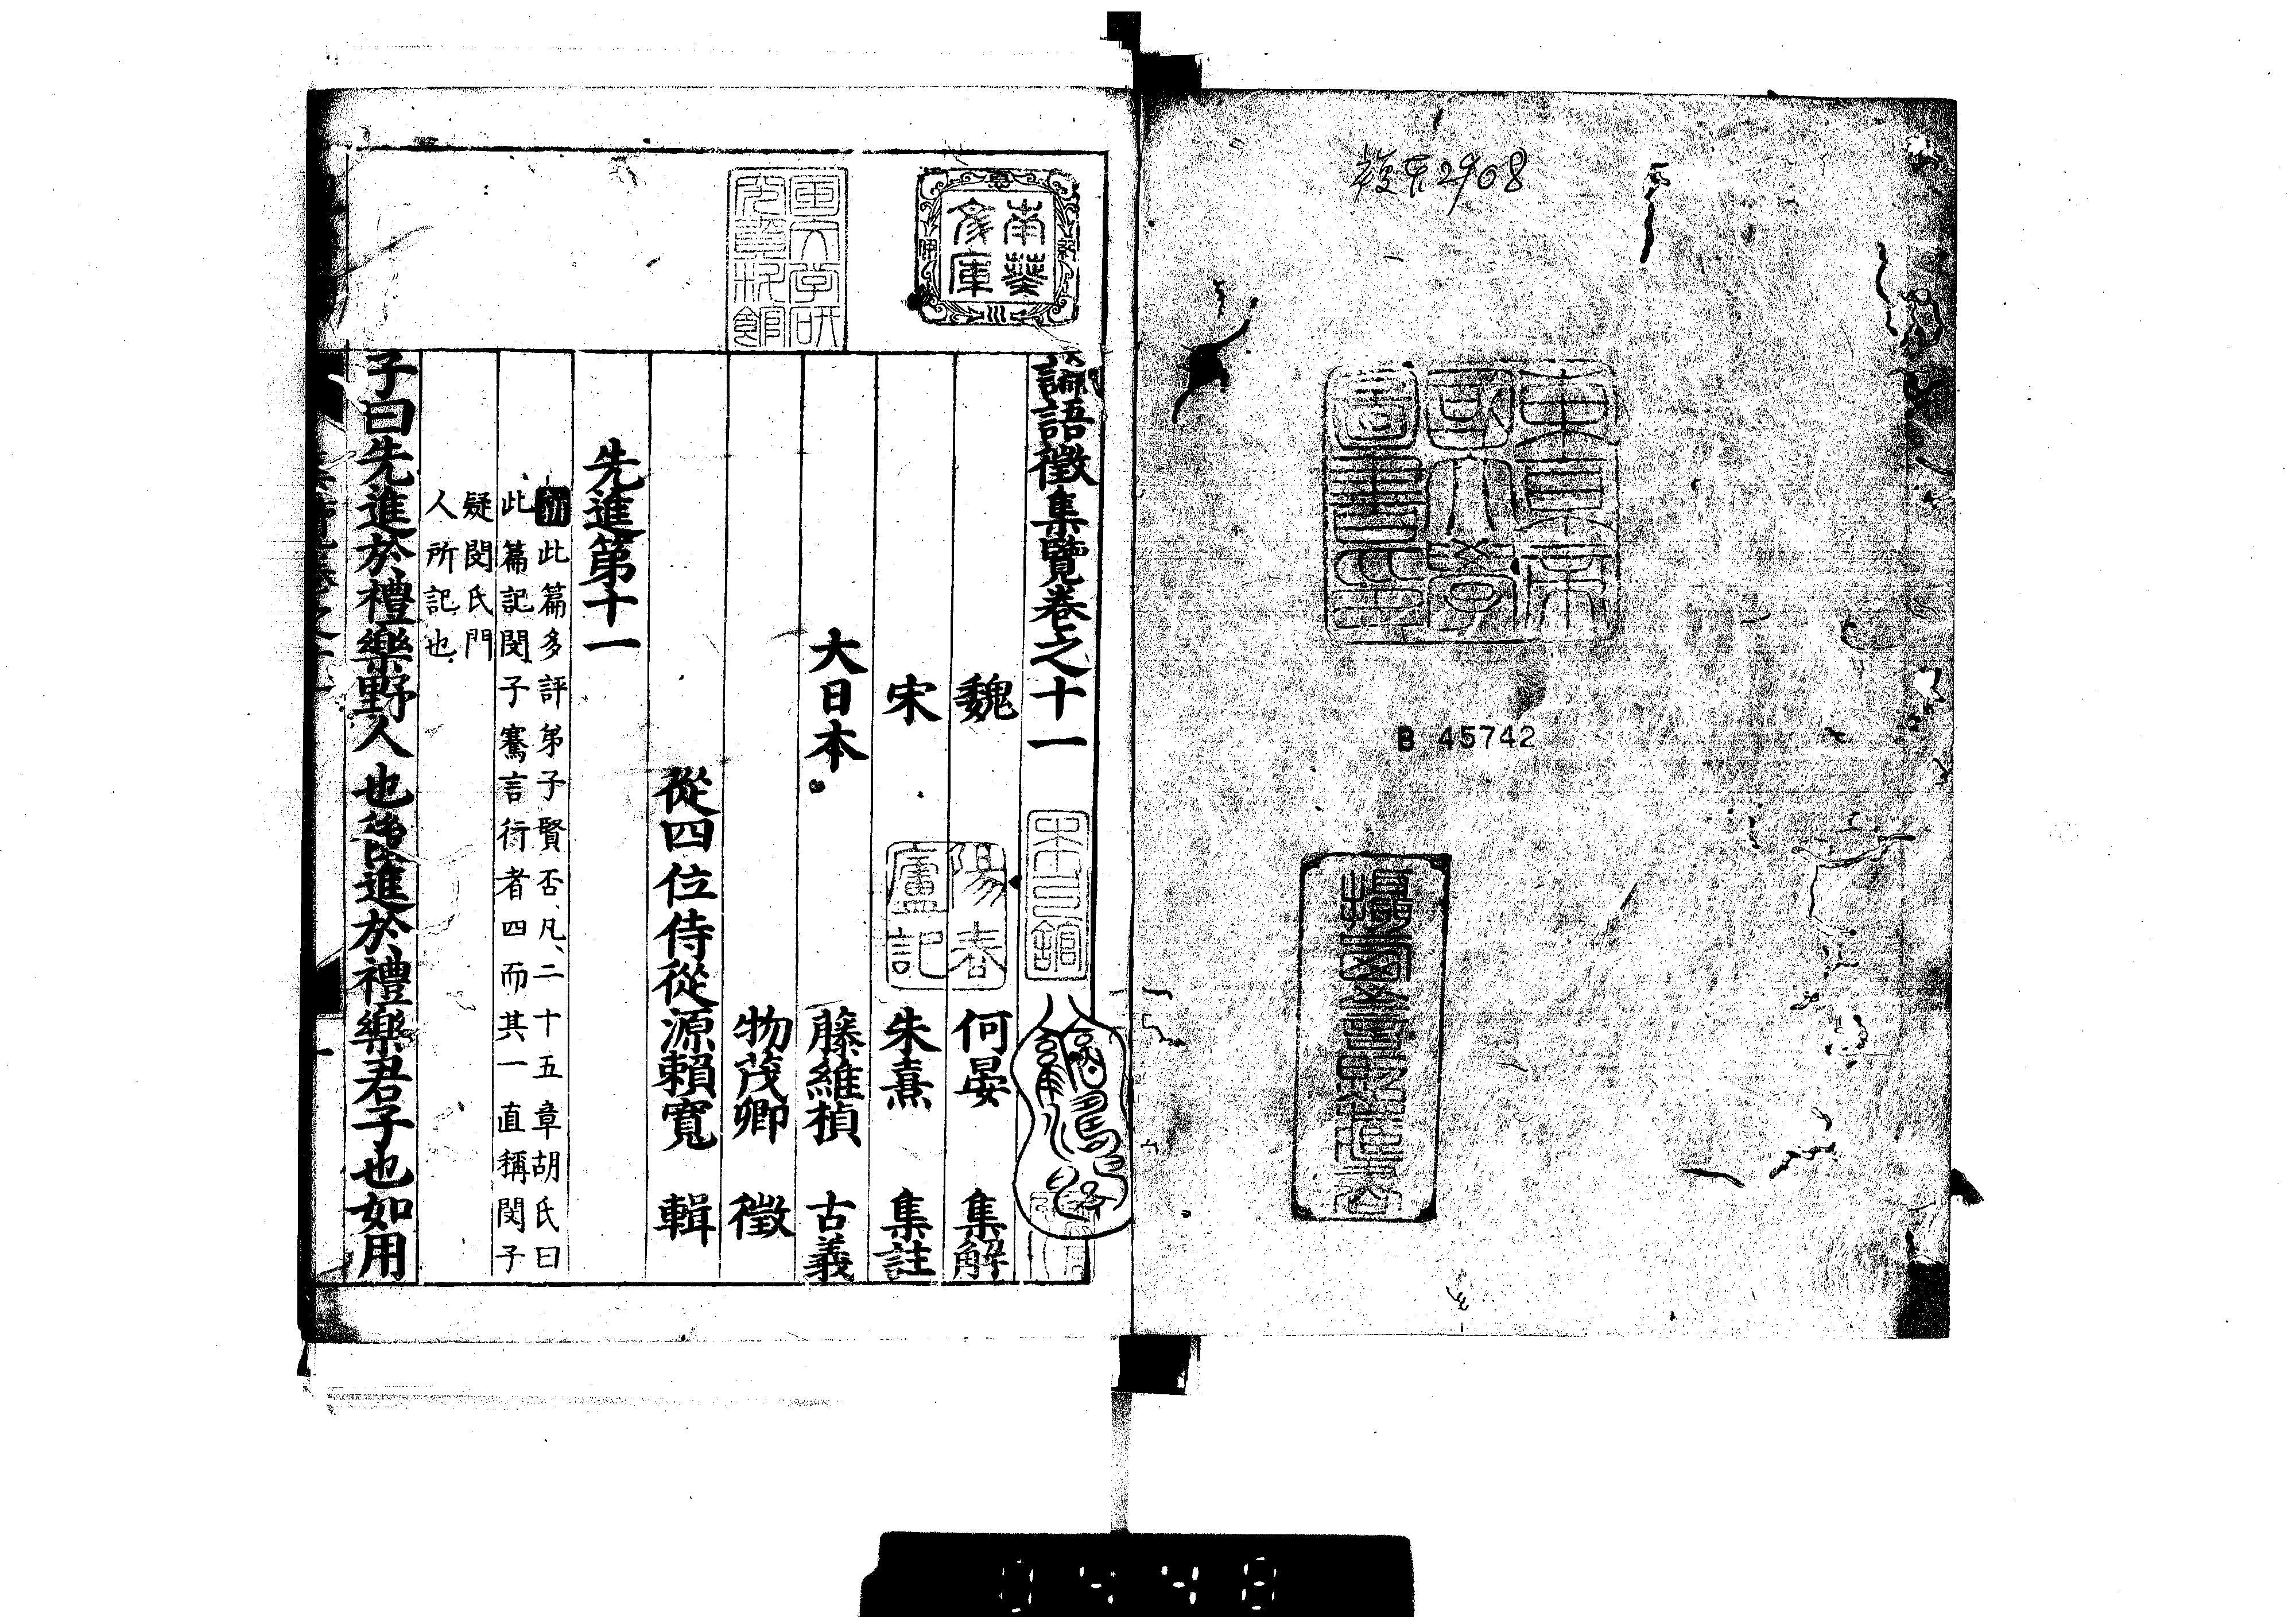 複ラ2908
東京帝國大學圖書印
B 45742
論語徵集覽卷之十一
魏 何晏 集解
宋 朱熹 集註
大日本 藤維楨 古義
物茂卿 徵
從四位侍從源賴寬 輯
先進第十一
此篇多評弟子賢否、凡、二十五章胡氏曰
此篇記閔子騫言行者四而其一直稱閔子
疑閔氏門
人所記也
子曰先進於禮樂野人也後進於禮樂君子也如用
南葵文庫
陽春廬記
0448